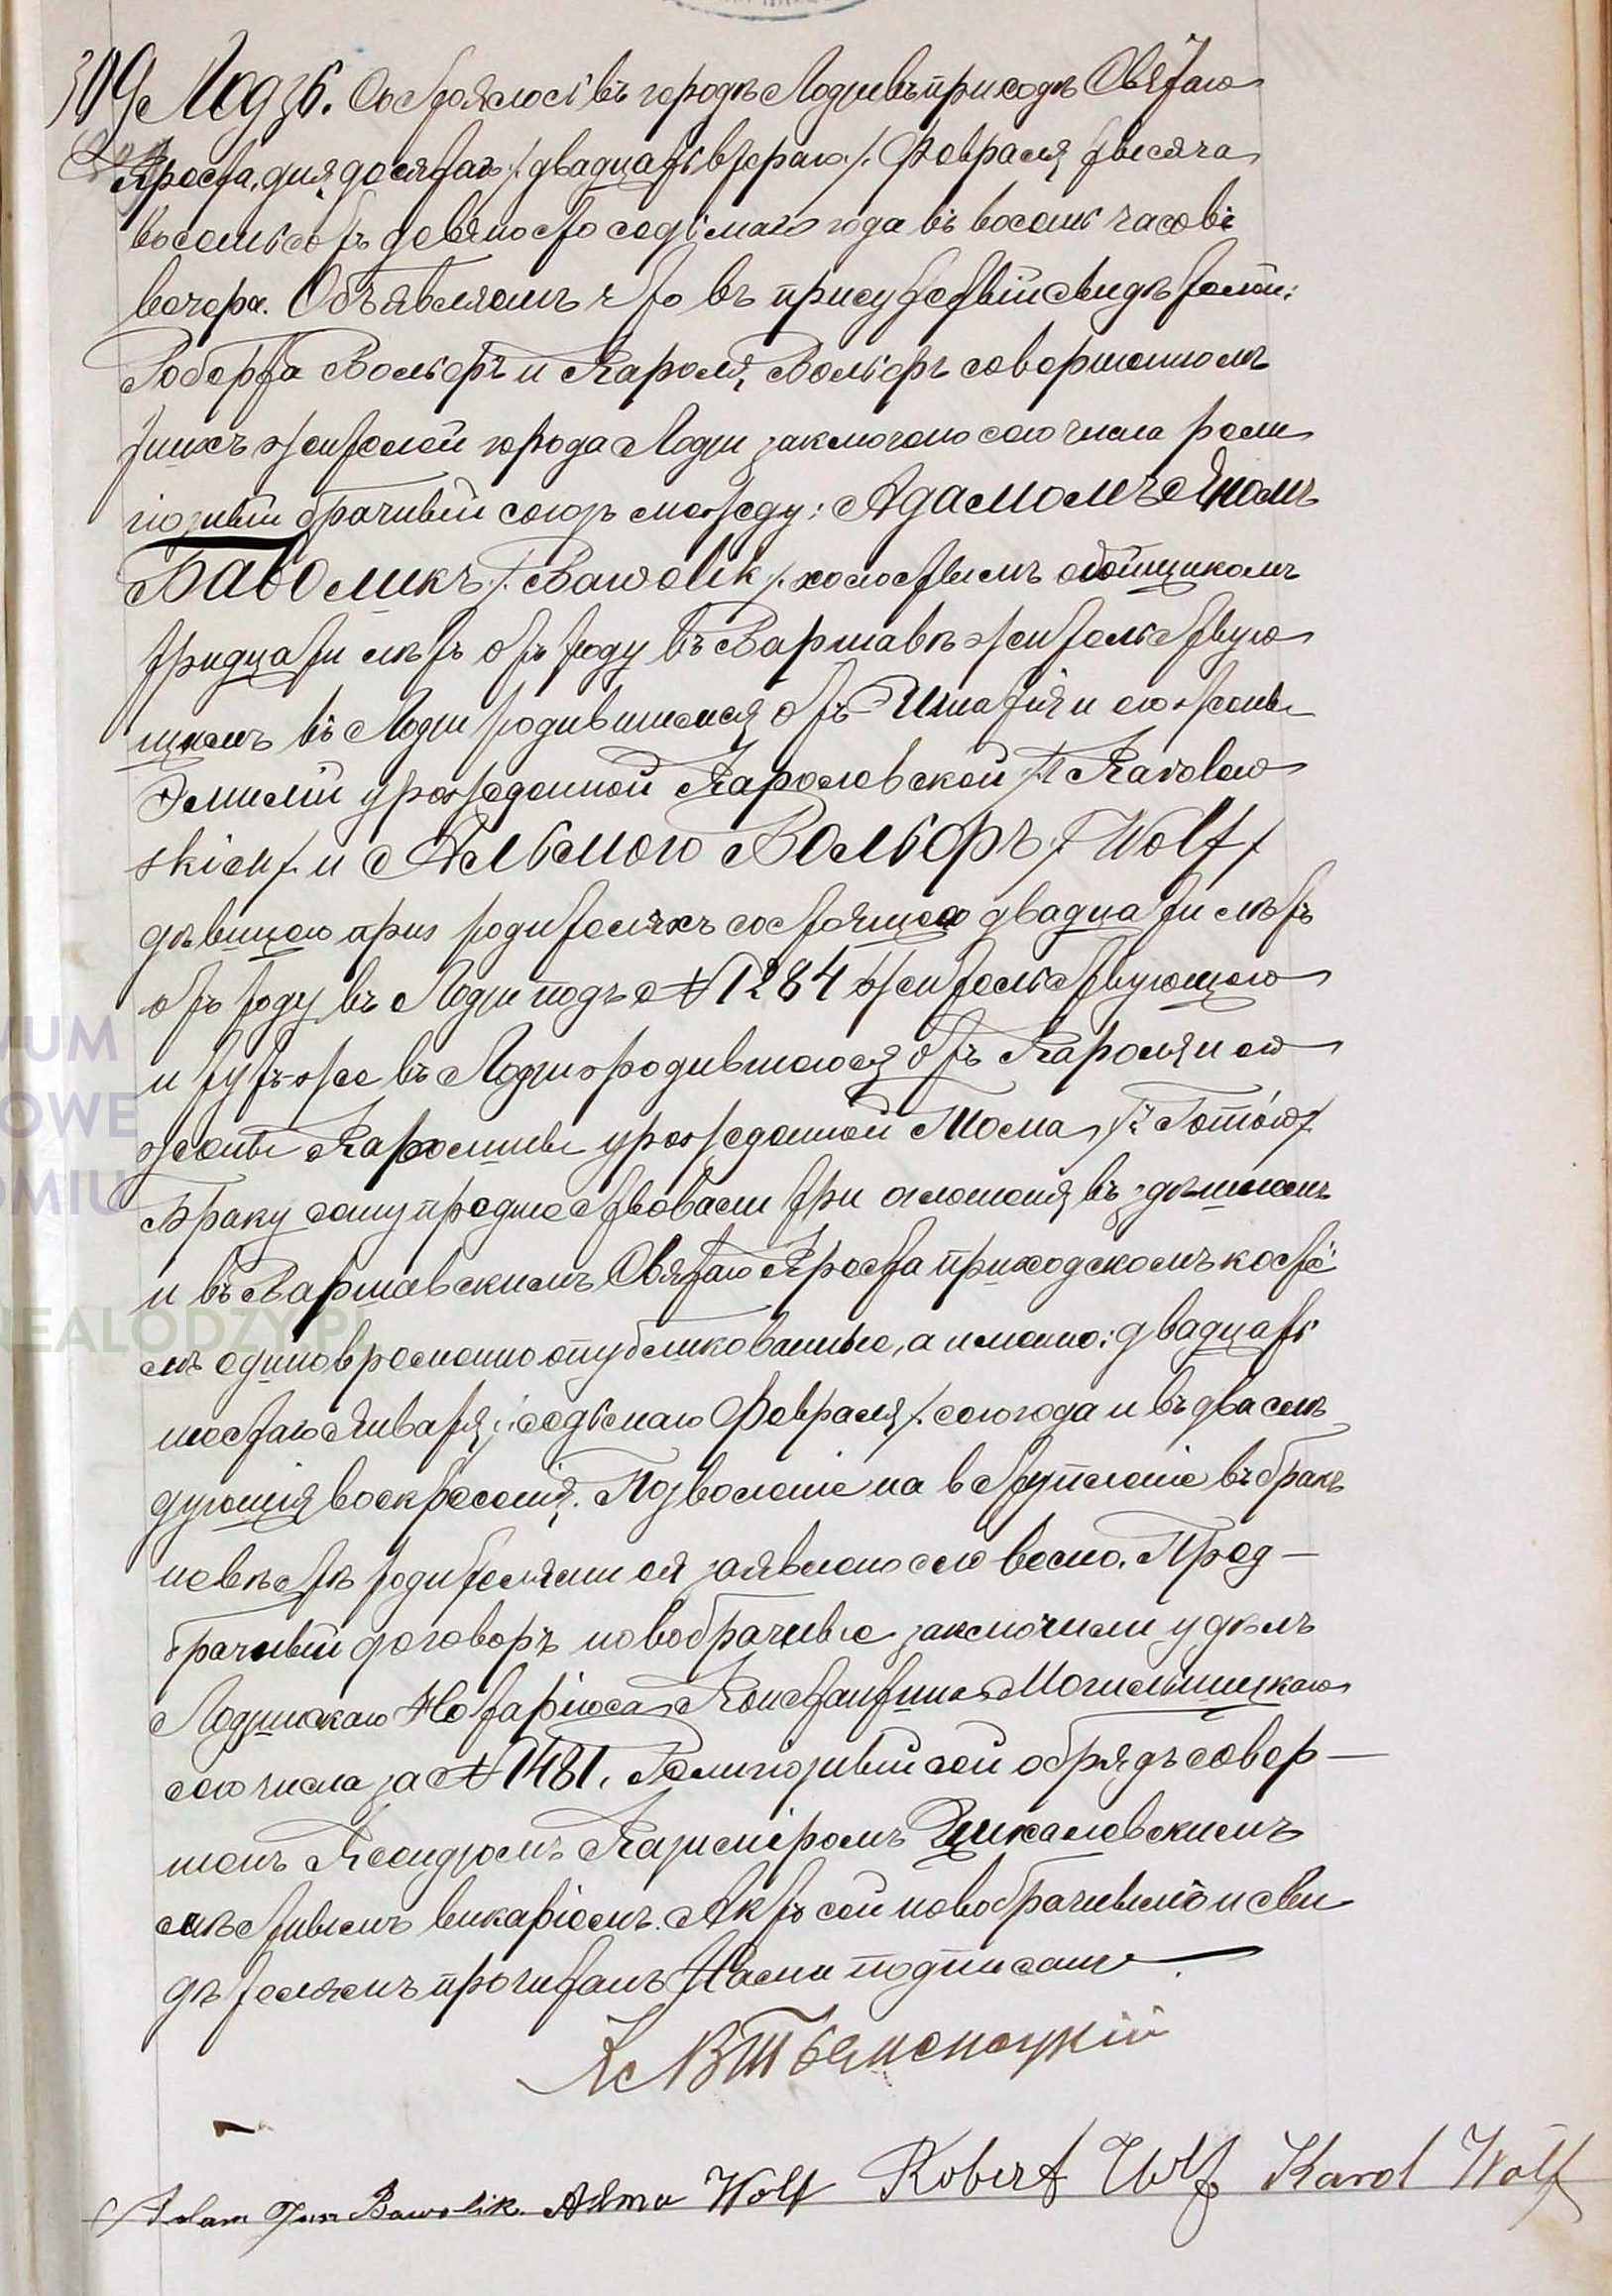 309 Лодзь. Состоялось въ городѣ Лодзи въ приходѣ Святаго
Креста, дня десятаго /двадцать втораго/ Февраля тысяча
восемьсотъ девяносто седьмаго года въ восемь часовъ
вечера. Объявляемъ что въ присутствіи свидѣтелей:
Роберта Вольфъ и Кароля Вольфъ совершеннолѣ
тнихъ жителей города Лодзи заключено сего числа рели
гіозный брачный союзъ между: Адамомъ Яномъ
Баволикъ /Bawolik/ холостымъ обойщикомъ
тридцати лѣтъ отъ роду въ Варшавѣ жительствую
щимъ въ Лодзи родившимся отъ Игнатія и его жены
Эмиліи урожденной Каролевской /z Karolew
skich/ и Альмою Вольфъ /Wolf/
дѣвицею при родителяхъ состоящею двадцати лѣтъ
отъ роду въ Лодзи подъ № 1284 жительствующею
и тутъ-же въ Лодзи родившеюся отъ Кароля и его
жены Каролины урожденной Тома /z Tomów/
Браку сему предшествовали три оглашенія въ здѣшнемъ
и въ Варшавскимъ Святаго Креста приходскомъ костё
лѣ одновременно опубликованные, а именно: двадцать
шестаго Января /седьмаго Февраля/ сего года и въ два слѣ
дующія воскресенія. Позволеніе на вступленіе въ бракъ
невѣстѣ родителями ея заявлено словесно. Пред-
брачный договоръ новобрачные заключили у дѣлъ
Лодзинскаго Нотаріуса Константина Могильницкаго
сего числа за № 1481. Религіозный сей обрядъ совер-
шенъ Ксендзомъ Казиміромъ Цикалевскимъ
мѣстнымъ викаріемъ. Актъ сей новобрачнымъ и сви
дѣтелямъ прочитанъ Нами подписанъ
Adam Jan Bawolik. Alma Wolf Robert Wolf Karol Wolf